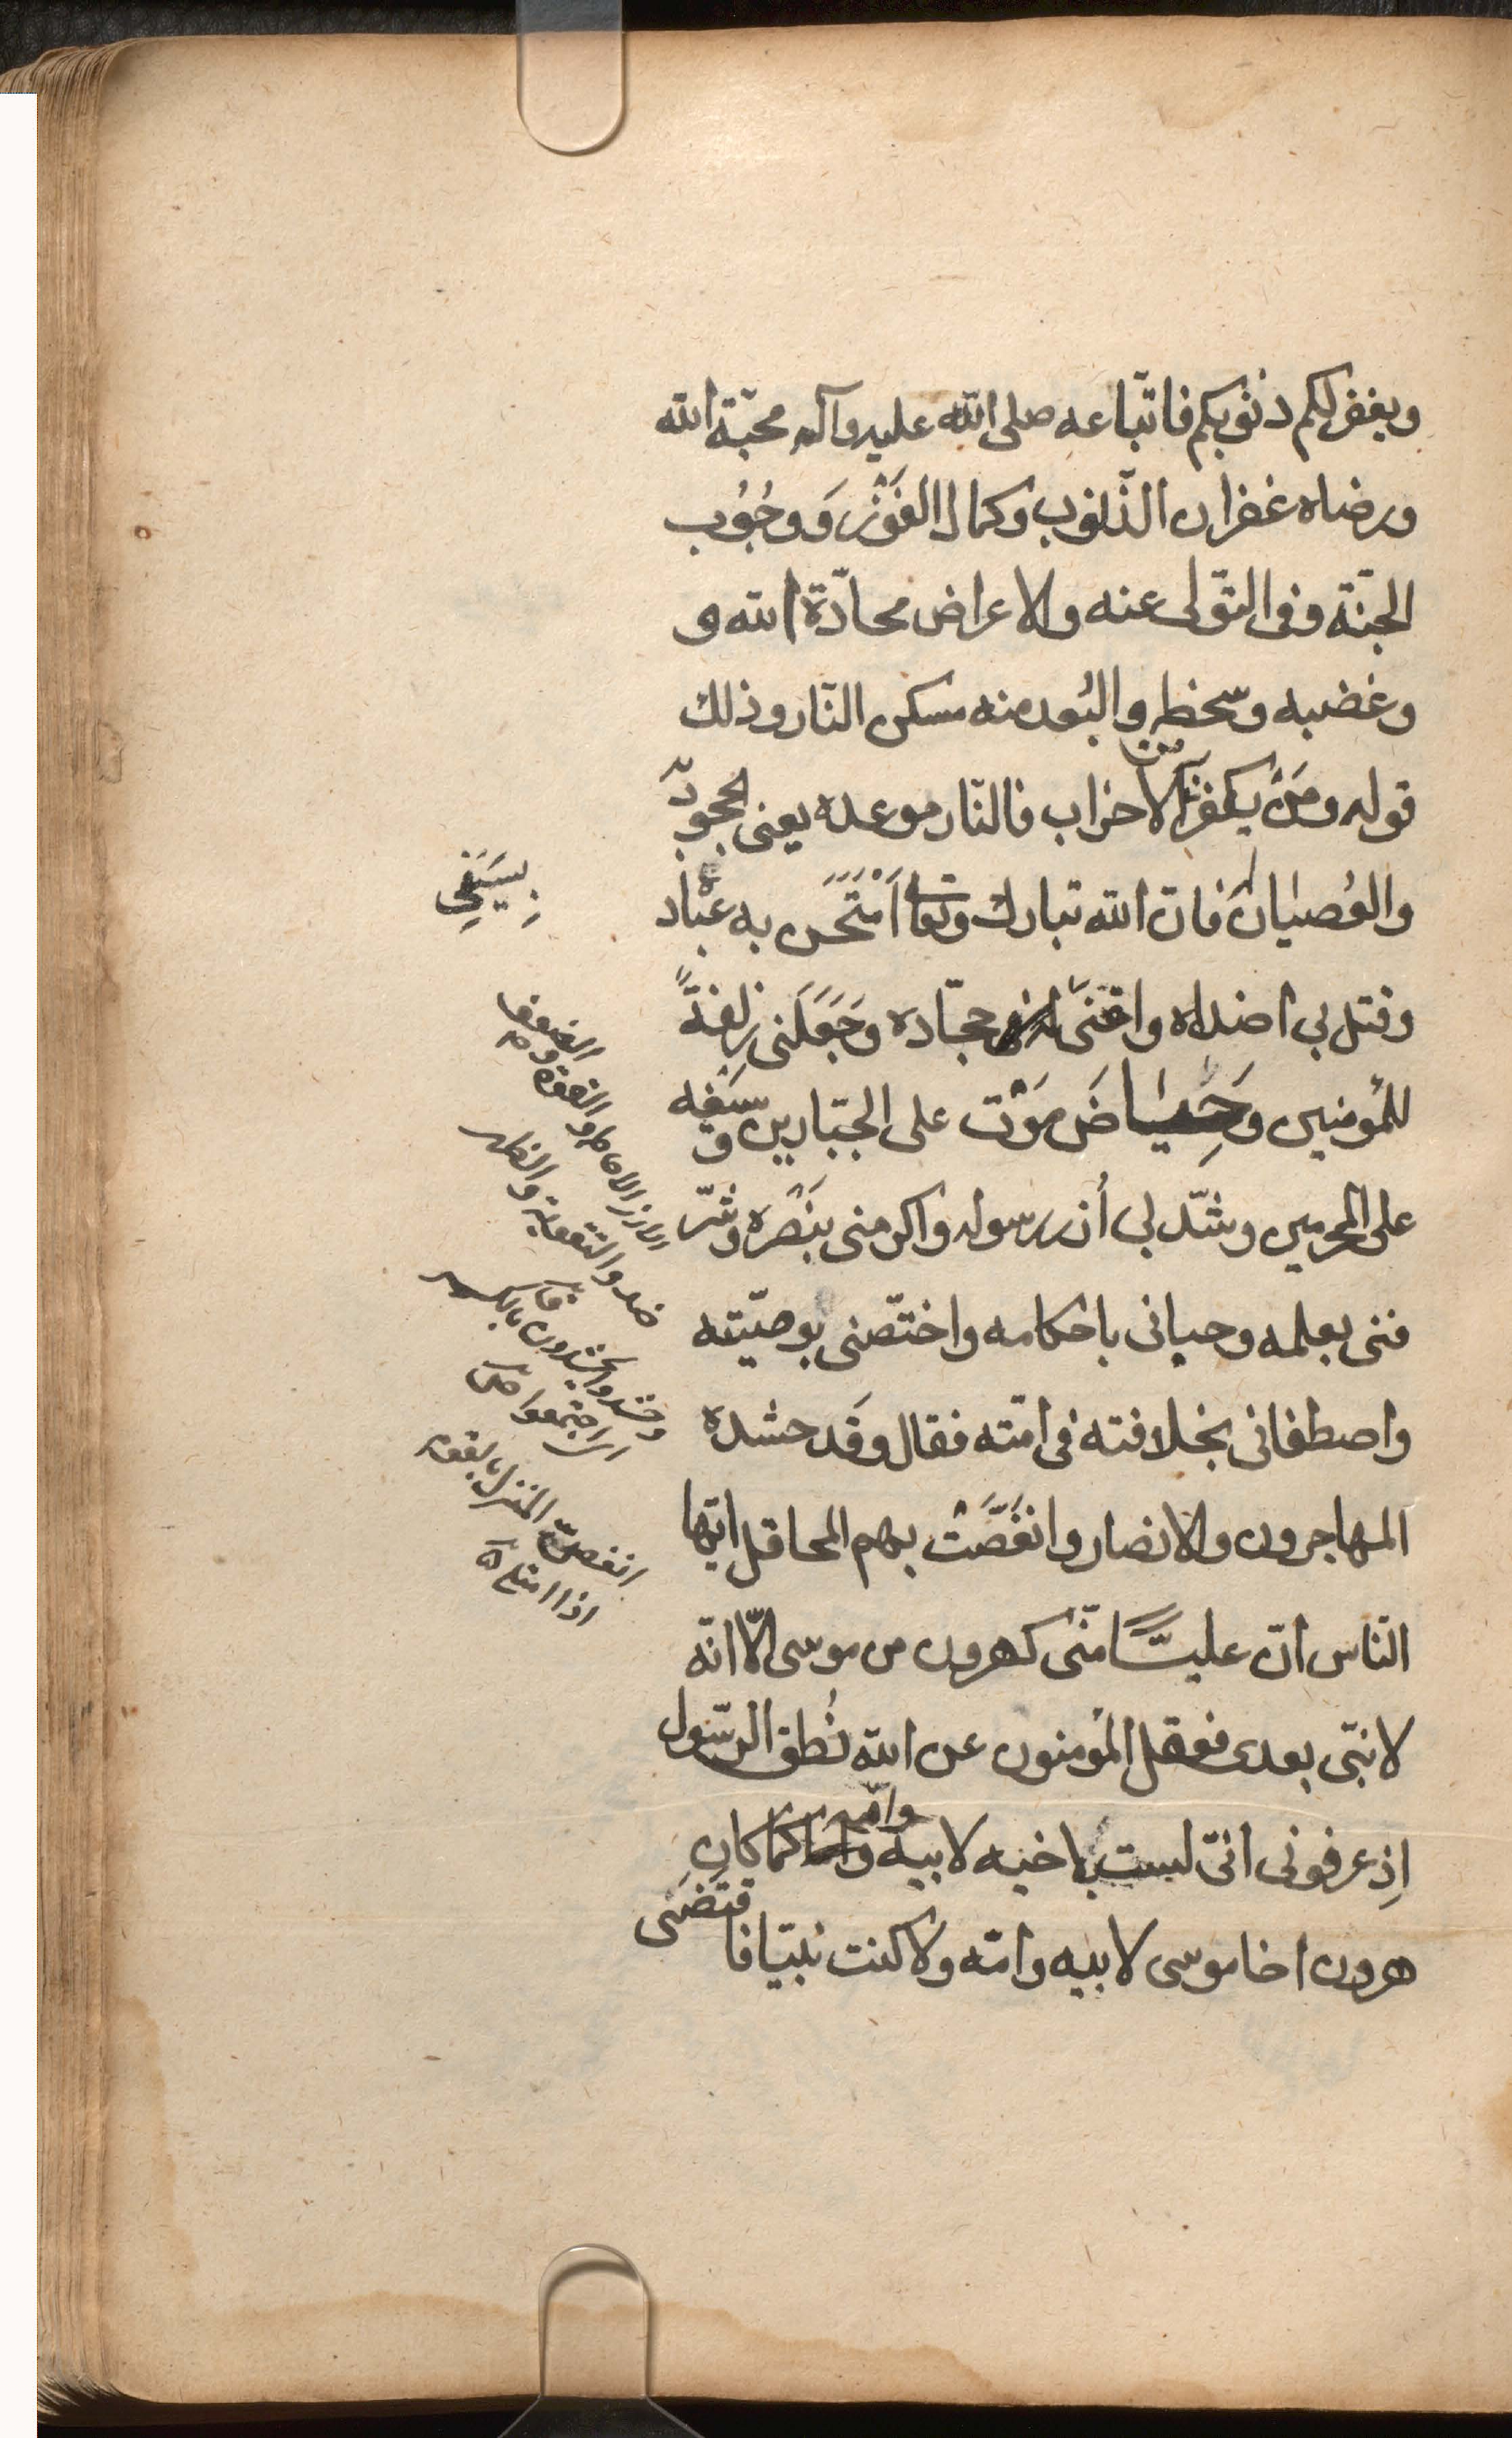 ويغفر لكم ذنوبكم فاتّباعه صلى الله عليه وآله محبّة الله
ورضاه غفران الذّنوب وكمال الفَوْز وَوجُوُب
الجنّة وفى التولّى عنه والاعراض محادّة الله و
وغضبه وسخطه والبُعد منه مسكن النّار وذلك
قوله ومَنْ يكفر به من الاحزاب فالنّار موعده يعنى الجحود به
والعُصيان له فان الله تبارك وتعالى اَمْتَحَن به عباد
وقتل بى اضداده وافنى بسَيَفى جحّاده وَجَعَلَنى زِلفةً
للمؤمنين وَحِيَاضَ مَوْت على الجبّارين وسَيفه
على المجرمين وشدّ بى أزر رسوله واكرمنى بنَصْره وشرّ
فنى بعلمه وحبانى باحكامه واختصّنى بوصيّته
واصطفانى بخلافته فى امّته فقال وقَد حشده
المهاجرون والانصار وانغَصَّتْ بهم المحافل ايّها
النّاس انّ عليّاً منّى كهرون من موسى الّا انّه
لا نبىّ بعدى فعقل المؤمنون عن الله نُطق الرّسول
اِذ عرفونى انّى لست باخيه لابيه وامّه كما كان
هرون اخا موسى لابيه وامّه ولا كنت نبيّا فاقتضى
بِسَيَفِى
الازر الاحاطة والقوة و الضعف
ضد والتقوية والظهر
وحشدوا يحشدون بالكسر
اى اجتمعوا
انغصّ المنزل بالقوم
اذا امتلأ